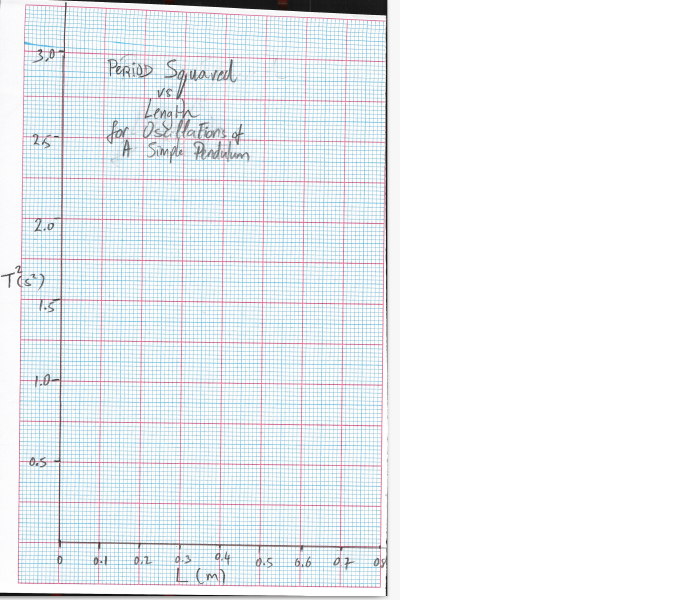 3.0
PERIOD Squared
vs
Length
for Oscillations of
A Simple Pendulum
2.5
2.0
T²(s²)
1.5
1.0
0.5
0 0.1 0.2 0.3 0.4 0.5 0.6 0.7
L (m)